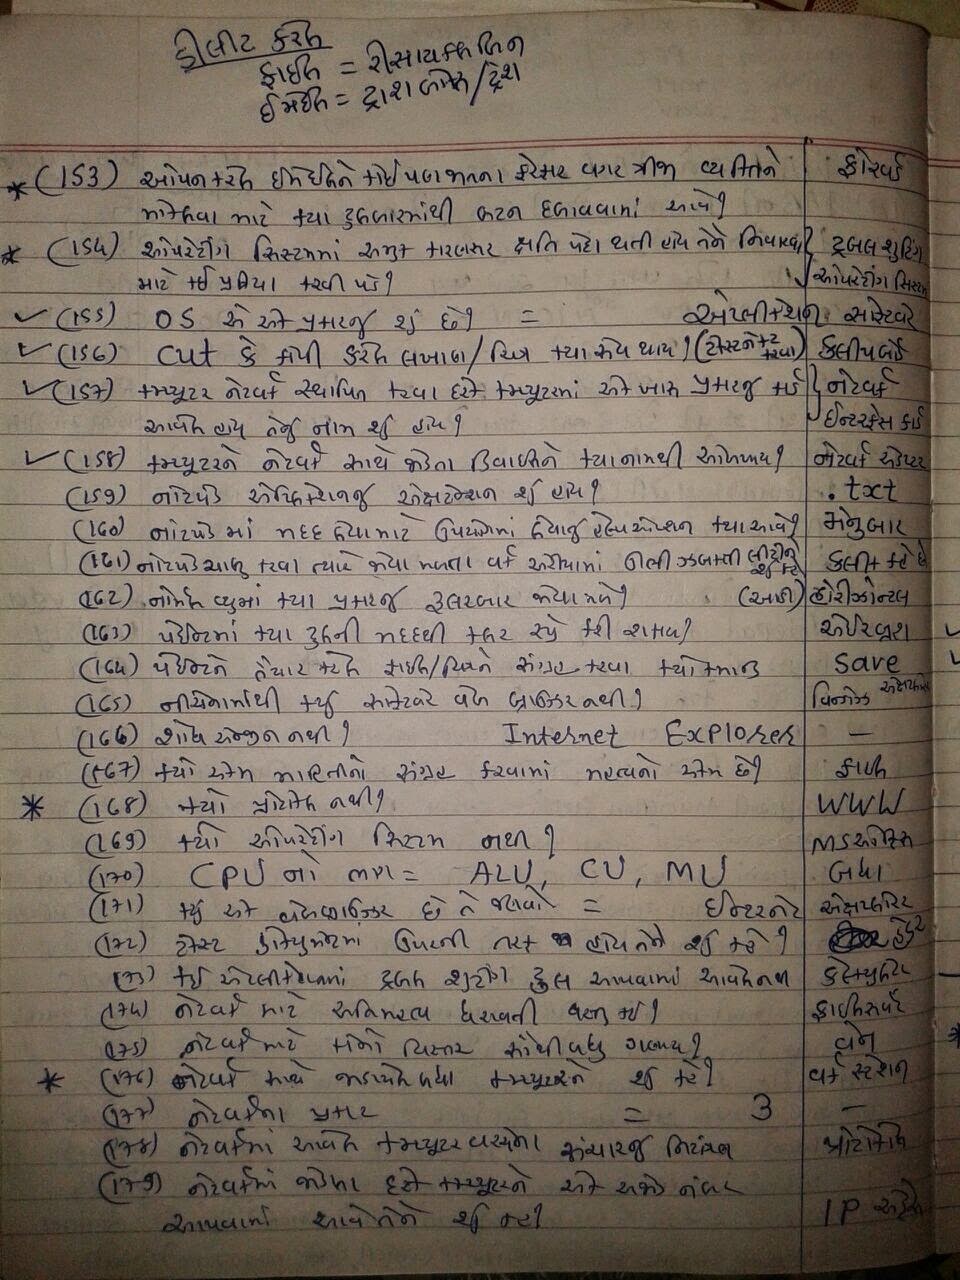 ડીલીટ કરેલ
ફાઈલ = રીસાયકલ બિન
ઈમેઈલ = ટ્રાશ બોક્ષ/ટ્રેશ
* (153) ઓપન કરેલ ઈમેઈલને કોઈપણ જાતના ફેરફાર વગર ત્રીજી વ્યક્તિને ફોરવર્ડ
મોકલવા માટે ક્યા ટુલબારમાંથી બટન દબાવવામાં આવે?
* (154) ઓપરેટીંગ સિસ્ટમમાં અમુક ક્ષતિ પેદા થતી હોય તેને નિવારવા ટ્રબલ શુટિંગ
માટે કઈ પ્રક્રિયા કરવી પડે? ઓપરેટીંગ સિસ્ટમ
✓ (155) OS એ એક પ્રકારનું શું છે? = એપ્લીકેશન સોફ્ટવેર
✓ (156) cut કે કોપી કરેલ લખાણ/ચિત્ર ક્યા સેવ થાય? ક્લીપબોર્ડ
✓ (157) કમ્પ્યુટર નેટવર્ક સ્થાપિત કરવા દરેક કમ્પ્યુટરમાં એક ખાસ પ્રકારનું કાર્ડ નેટવર્ક
આવેલ હોય તેનું નામ શું હોય? ઈન્ટરફેસ કાર્ડ
✓ (158) કમ્પ્યુટરને નેટવર્ક સાથે જોડતા ડિવાઈસને ક્યા નામથી ઓળખાય? નેટવર્ક એડેપ્ટર
(159) નોટપેડ એપ્લિકેશનનું એક્ષટેન્શન શું હોય? .txt
(160) નોટપેડ માં મદદ લેવા માટે ઉપયોગમાં લેવાનું હેલ્પ ઓપ્શન ક્યા આવે? મેનુબાર
(161) નોટપેડ ચાલુ કરવા ત્યારે જોવા મળતા વર્ક એરીયામાં ઉભી ઝબકતી લીટીને શું કહે કર્સર કહે છે
(162) નોર્મલ વ્યુમાં ક્યા પ્રકારનું રૂલરબાર જોવા મળે? (આડી) હોરીઝોન્ટલ
(163) પેઈન્ટમાં ક્યા ટુલની મદદથી કલર સ્પ્રે કરી શકાય? એરબ્રશ
(164) પેઈન્ટને તૈયાર કરેલ ફાઈલ/ચિત્રને સંગ્રહ કરવા ક્યો કમાન્ડ save
(165) નીચેનામાંથી ક્યું સોફ્ટવેર વેબ બ્રાઉઝર નથી? વિન્ડોઝ એક્ષપ્લોરર
(166) શોધ એન્જીન નથી? Internet Explorer —
(167) ક્યો એકમ માહિતીનો સંગ્રહ કરવામાં મહત્વનો એકમ છે? ફાઈલ
* (168) ક્યો પ્રોટોકોલ નથી? WWW
(169) ક્યી ઓપરેટીંગ સિસ્ટમ નથી? MS ઓફિસ
(170) CPU નો ભાગ = ALU, CU, MU બધા
(171) ક્યું એક વેબબ્રાઉઝર છે તે જણાવો = ઈન્ટરનેટ એક્ષપ્લોરર
(172) ટેક્સ્ટ ડોક્યુમેન્ટમાં ઉપરની તરફ હોય તેને શું કહે? હેડર
(173) કઈ એપ્લીકેશનમાં ટ્રબલ શુટીંગ ટુલ આપવામાં આવેલ નથી કેલ્ક્યુલેટર
(174) નેટવર્ક માટે અતિમહત્વ ધરાવતી વસ્તુ કઈ? ફાઈલસર્વર
(175) નેટવર્ક માટે કોનો વિસ્તાર સૌથી વધુ ગણાય? વેન
* (176) નેટવર્ક સાથે જોડાયેલ બધા કમ્પ્યુટરને શું કહે? વર્ક સ્ટેશન
(177) નેટવર્કના પ્રકાર = 3 —
(178) નેટવર્કમાં આવેલ કમ્પ્યુટર વચ્ચેના સંચારનું નિયંત્રણ પ્રોટોકોલ
(179) નેટવર્કમાં જોડેલા દરેક કમ્પ્યુટરને એક અજોડ નંબર
આપવામાં આવે તેને શું કહે? IP એડ્રેસ